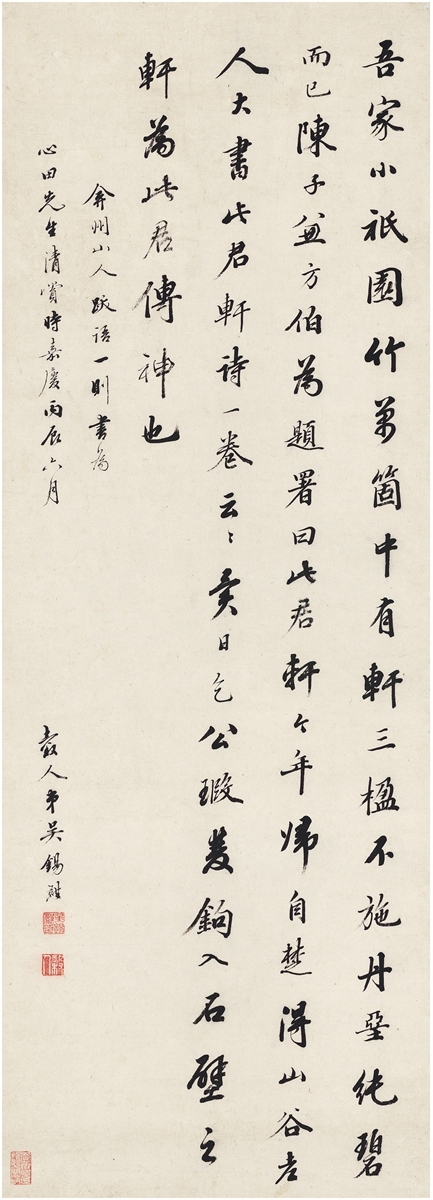 吾家小祇園竹萬箇中有軒三楹不施丹堊純碧
而已陳子兼方伯為題署曰此君軒今年歸自楚得山谷老
人大書此君軒詩一卷云云異日乞公瑕雙鉤入石壁之
軒為此君傳神也
弇州山人跋語一則書為
心田先生清賞時嘉慶丙辰六月
穀人弟吳錫麒